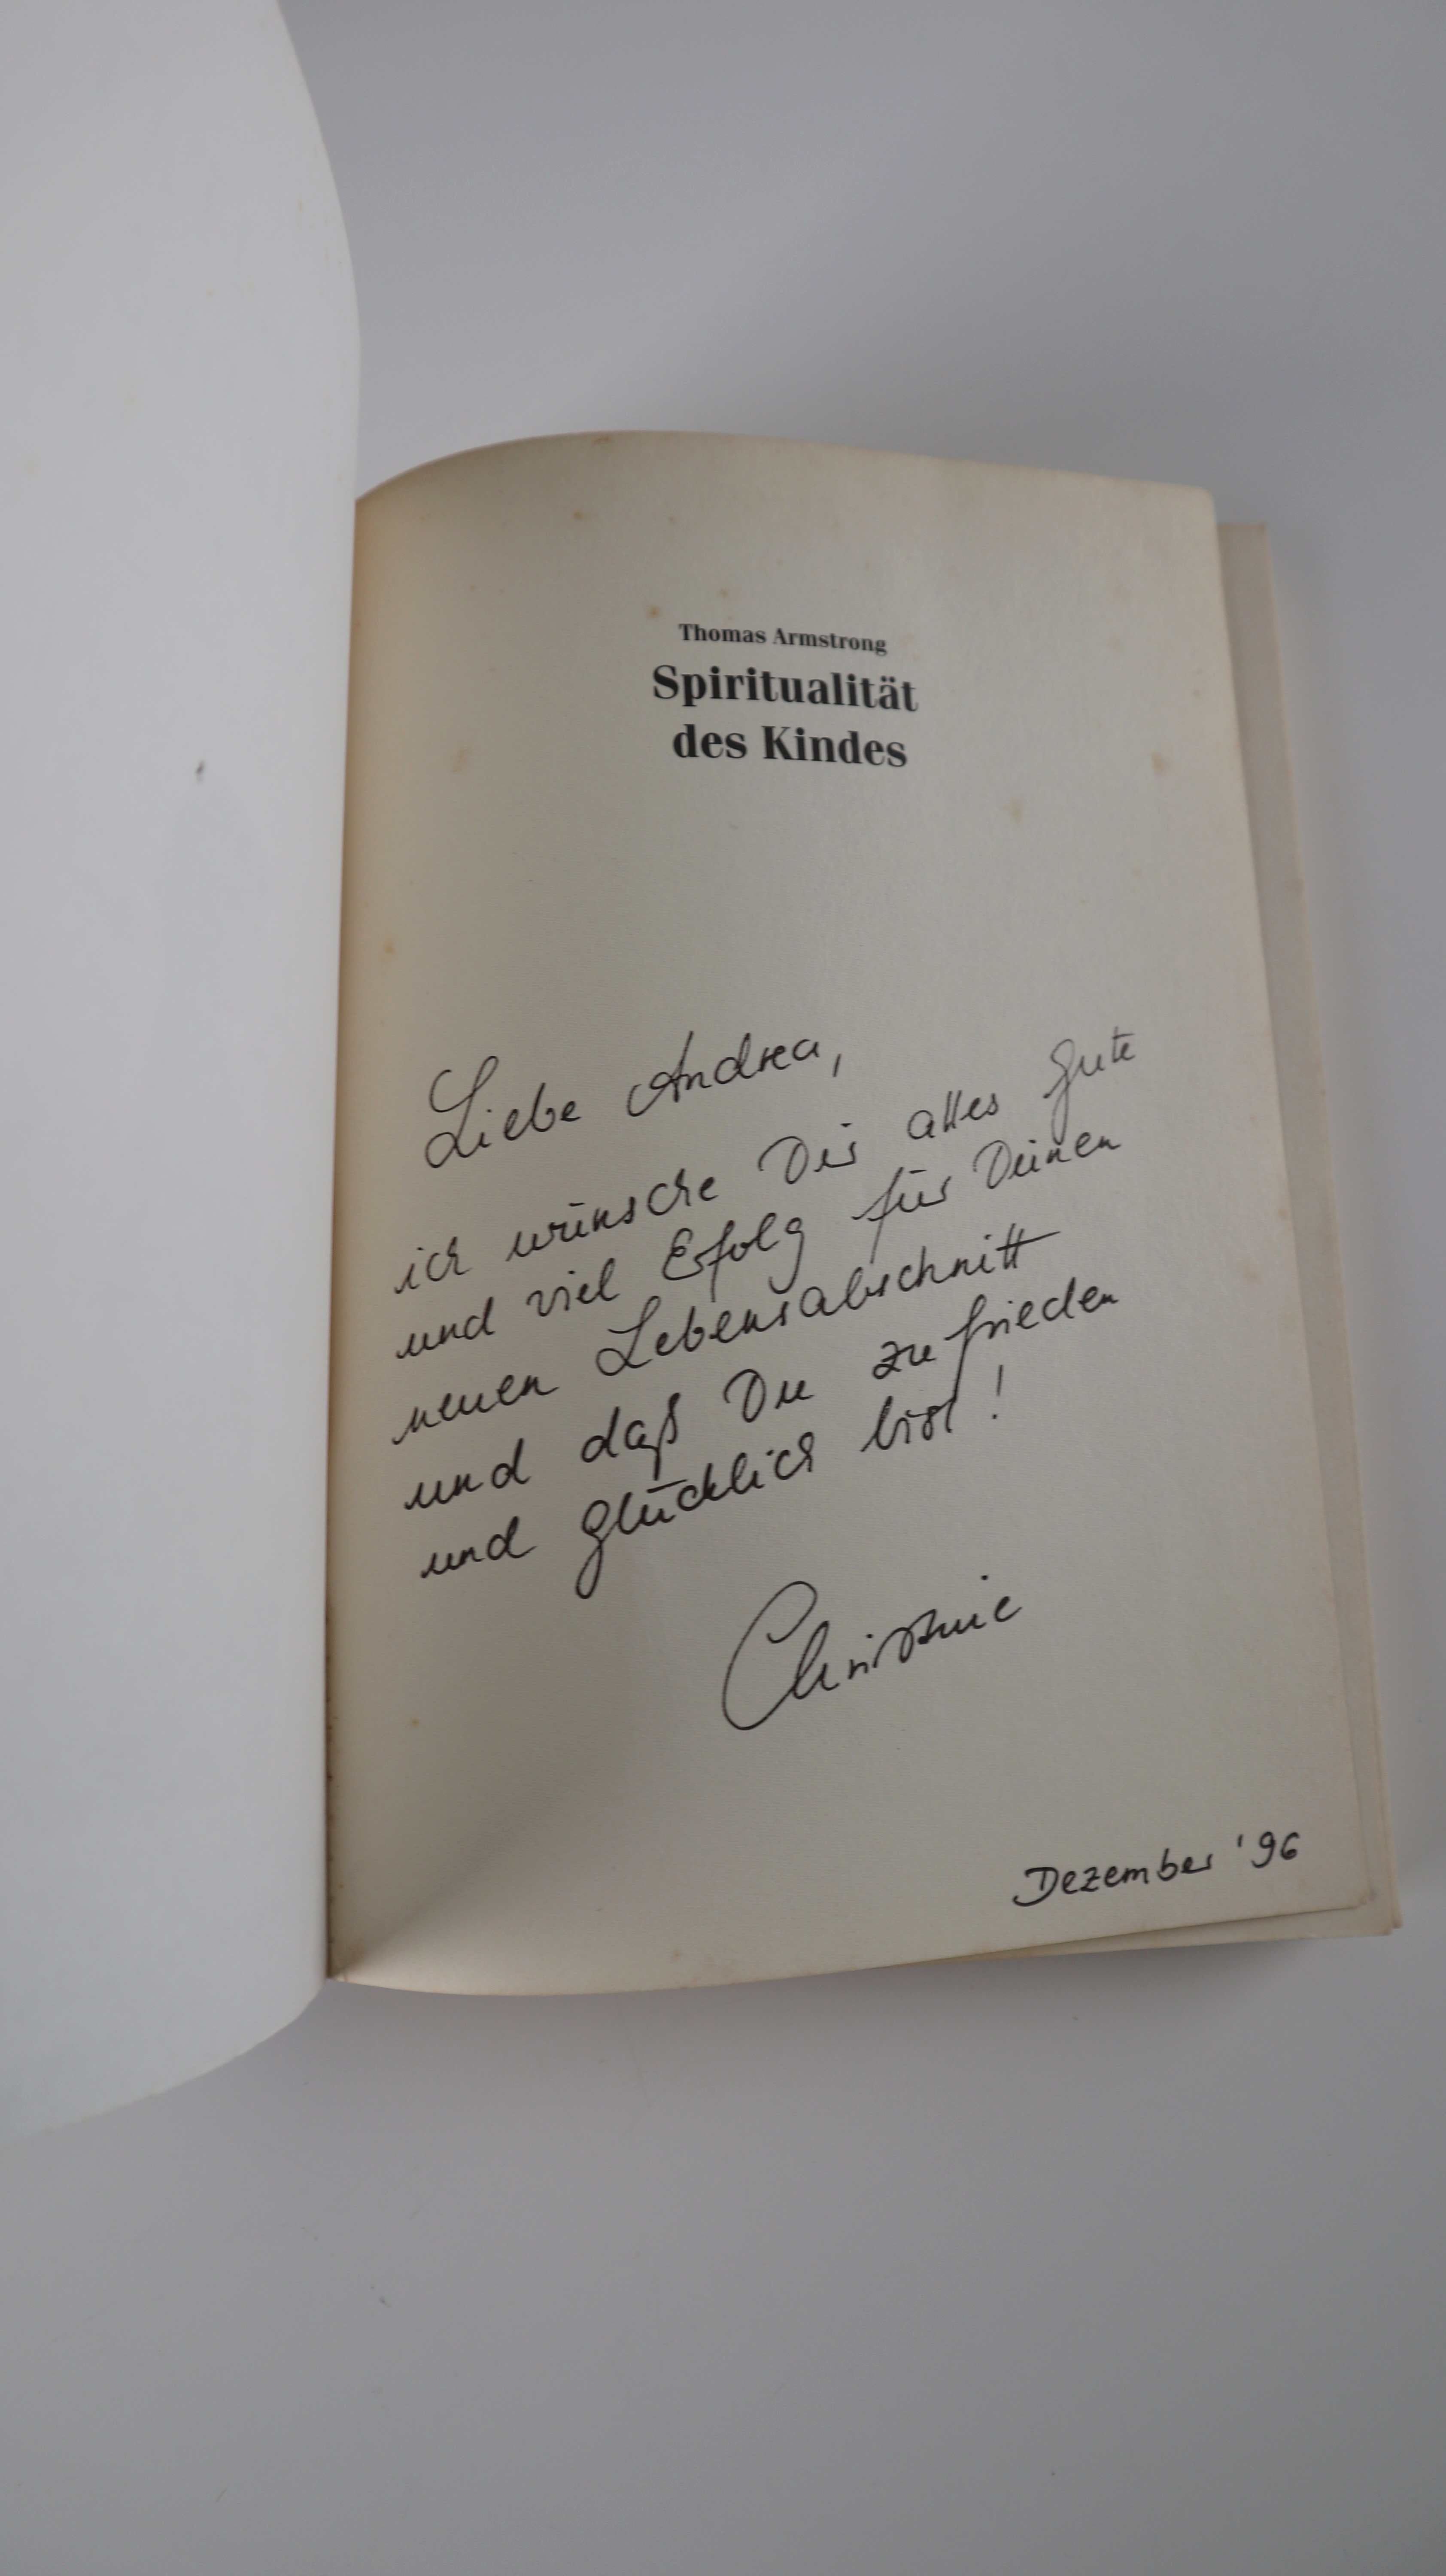 Thomas Armstrong
Spiritualität
des Kindes
Liebe Andrea,
ich wünsche Dir alles Gute
und viel Erfolg für Deinen
neuen Lebensabschnitt
und daß Du zufrieden
und glücklich bist!
Christine
Dezember '96